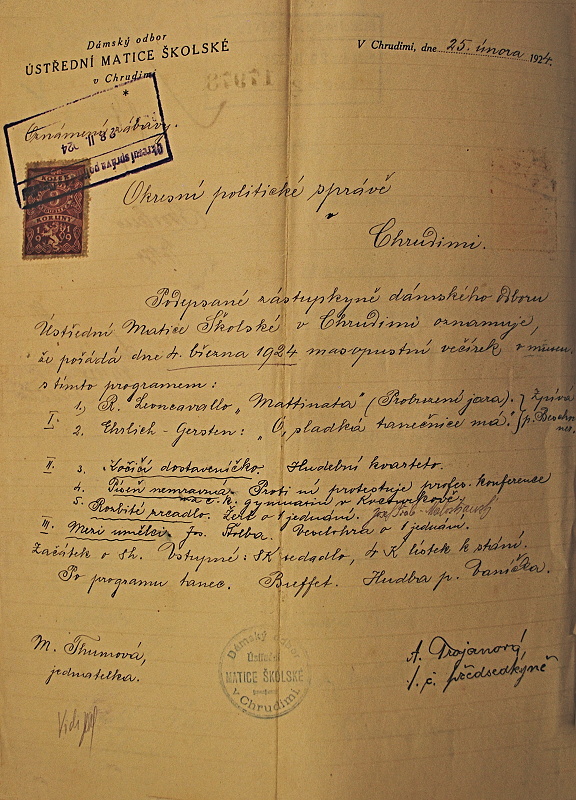 Dámský odbor
ÚSTŘEDNÍ MATICE ŠKOLSKÉ
v Chrudimi
*
V Chrudimi, dne 25. února 1924.
Oznámení zábavy.
28. II. '24
Okresní správa
KORUNY
Okresní politické správě
v
Chrudimi.
Podepsané zástupkyně dámského odboru
Ústřední Matice Školské v Chrudimi oznamuje,
že pořádá dne 4. března 1924 masopustní večírek v museu,
s tímto programem:
I. 1. R. Leoncavallo „Mattinata" (Probuzení jara). } Zpívá
2. Ehrlich - Gersten: „Ó, sladká tanečnice má." } p.
II. 3. Noční dostaveníčko. Hudební kvarteto.
4. Píseň nemravná. Proti ní protestuje profes. konference
na c. k. gymnasiu v Kocourkově.
5. Rozbité zrcadlo. Žert o 1 jednání.
III. Mezi umělci. Jos. Štolba. Veselohra o 1 jednání.
Začátek o 8h. Vstupné: 8K sedadlo, 4 K lístek k stání.
Po programu tanec. Buffet. Hudba p. Vaníčka.
M. Thumová,
jednatelka.
A. Trojanová,
t. č. předsedkyně
Dámský odbor
Ústřední
MATICE ŠKOLSKÉ
v Chrudimi